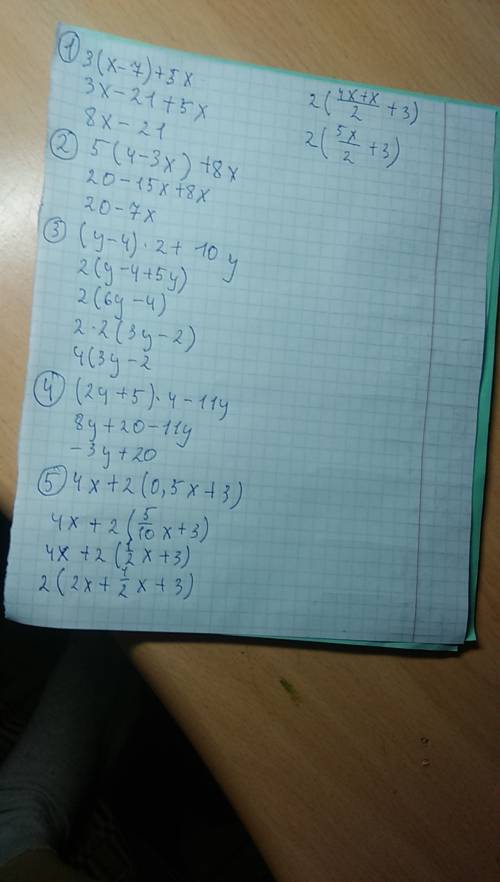 ① 3(x-7)+5x
3x-21+5x
8x-21
② 5(4-3x)+8x
20-15x+8x
20-7x
③ (y-4)·2+10y
2(y-4+5y)
2(6y-4)
2·2(3y-2)
4(3y-2
④ (2y+5)·4-11y
8y+20-11y
-3y+20
⑤ 4x+2(0,5x+3)
4x+2(5/10x+3)
4x+2(1/2x+3)
2(2x+1/2x+3)
2((4x+x)/2+3)
2(5x/2+3)